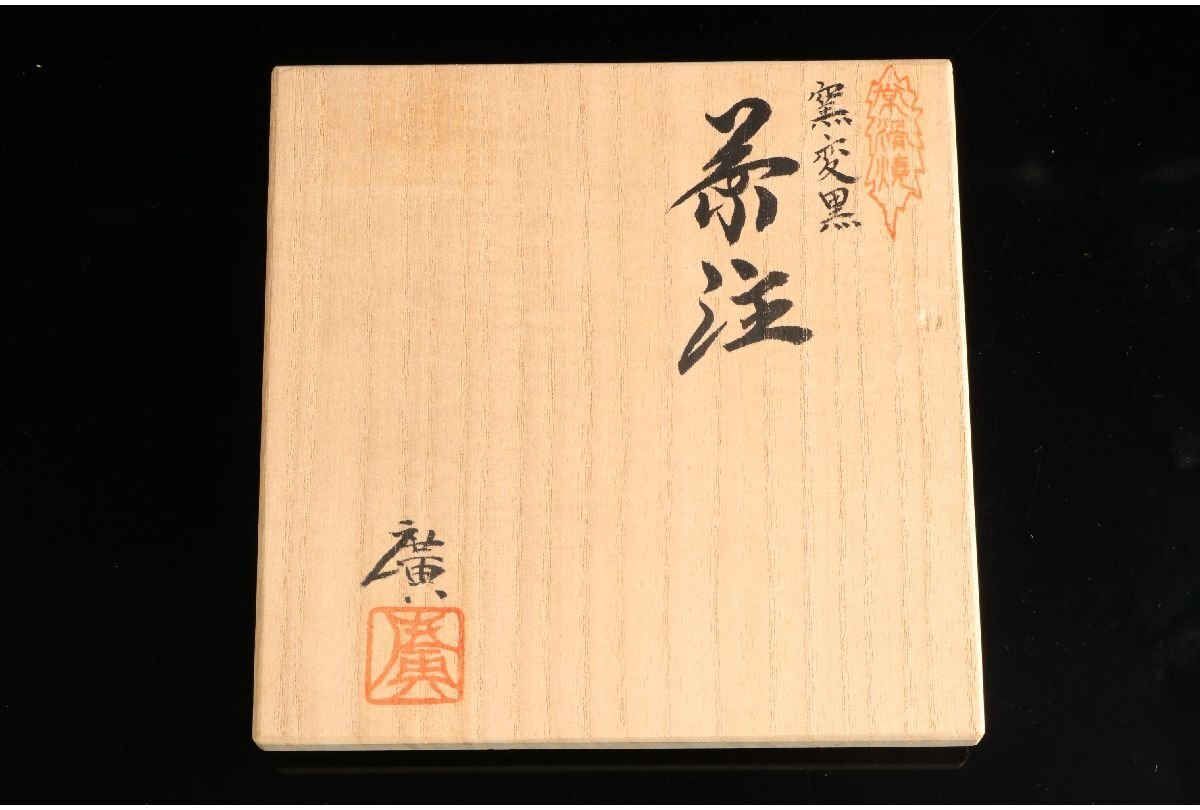 常滑焼
窯変黒
茶注
廣
廣